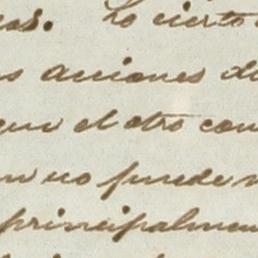 Lo cierto
acciones de
que el otro con
no puede
principalmen